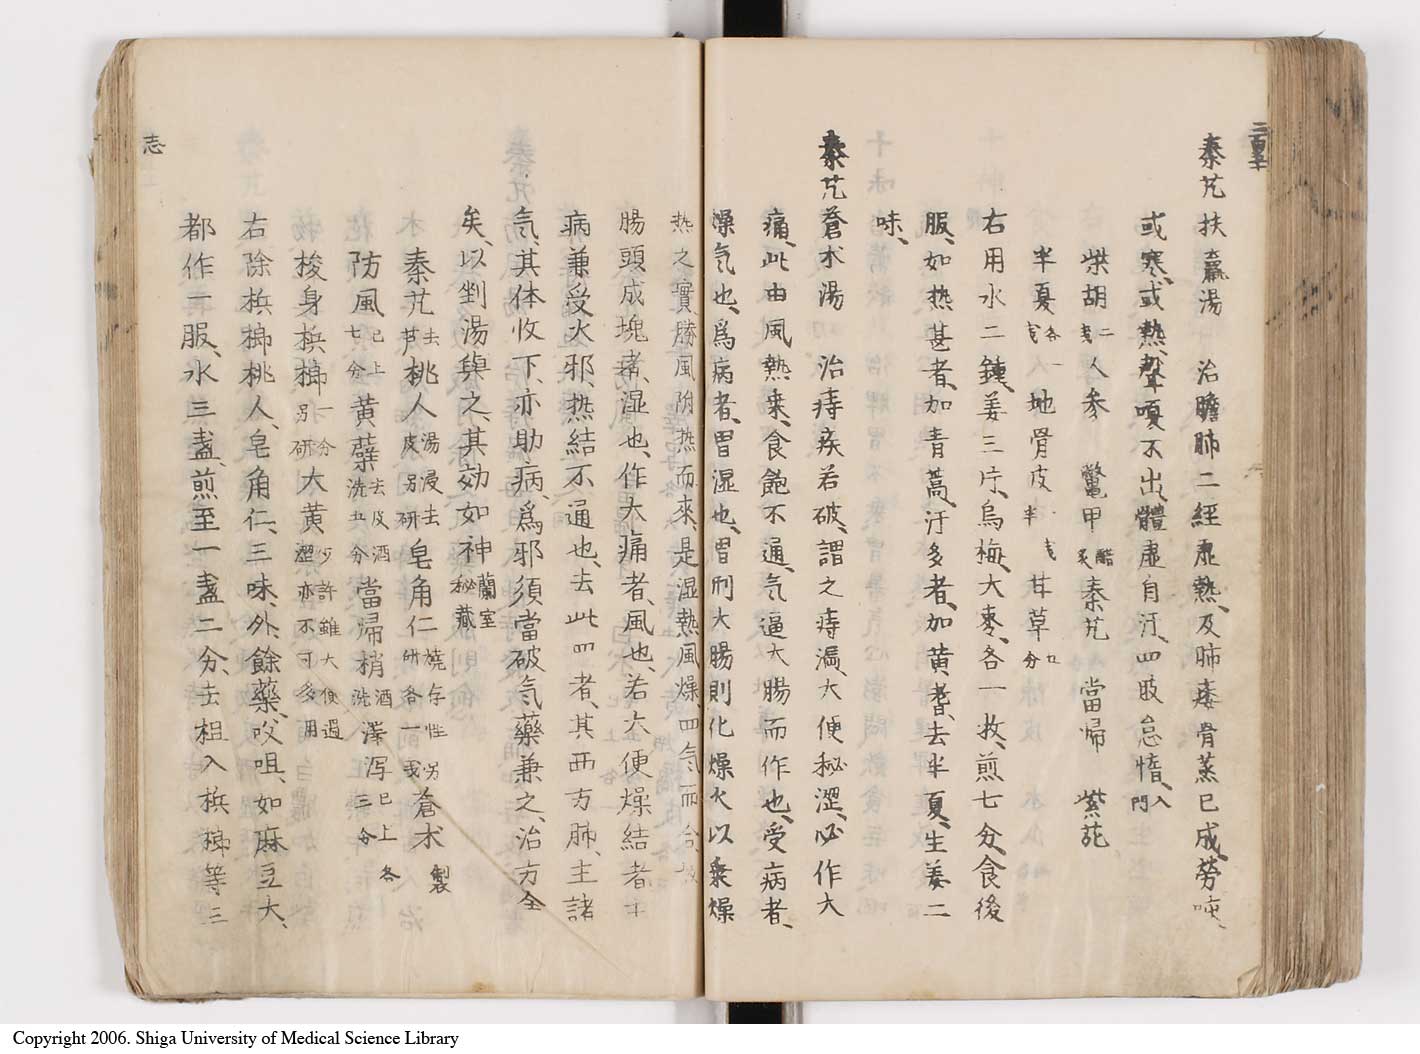 秦艽扶羸湯　治膽肺二經虛熱、及肺痿骨蒸已成、勞咳、
或寒、或熱、聲嗄不出、體虛自汗、四肢怠惰、入門
柴胡二戔人參　鱉甲醋炙秦艽　當歸　紫菀
半夏各一戔地骨皮半戔　甘草七分
右用水二鍾、姜三片、烏梅、大棗、各一枚、煎七分、食後
服、如热甚者、加青蒿、汗多者、加黄耆、去半夏、生姜二
味、
秦艽蒼朮湯　治痔疾若破、謂之痔漏、大便秘澀、必作大
痛、此由風熱乗、食飽不通、气逼大腸而作也、受病者、
燥气也、爲病者、胃湿也、胃刑大腸則化燥火以乗燥
热之實、勝風附热而來、是湿熱風燥、四气而合、故
腸頭成塊者、湿也、作大痛者、風也、若大便燥結者、主
病兼受火邪、热結不通也、去此四者、其西方肺、主諸
气、其体收下、亦助病、爲邪須當破气藥兼之、治方全
矣、以剉湯與之、其効如神蘭室秘藏
秦艽去芦桃人湯浸去皮另研皂角仁燒存性另研各一戔蒼朮製
防風已上七分黄蘗去皮酒洗五分當帰梢酒洗澤泻已上各三分
梭身梹榔一分別研大黄少許雖大便過澀亦不可多用
右除梹榔桃人、皂角仁、三味、外、餘藥、㕮咀、如麻豆大、
都作一服、水三盞、煎至一盞二分、去柤入梹榔等三
志